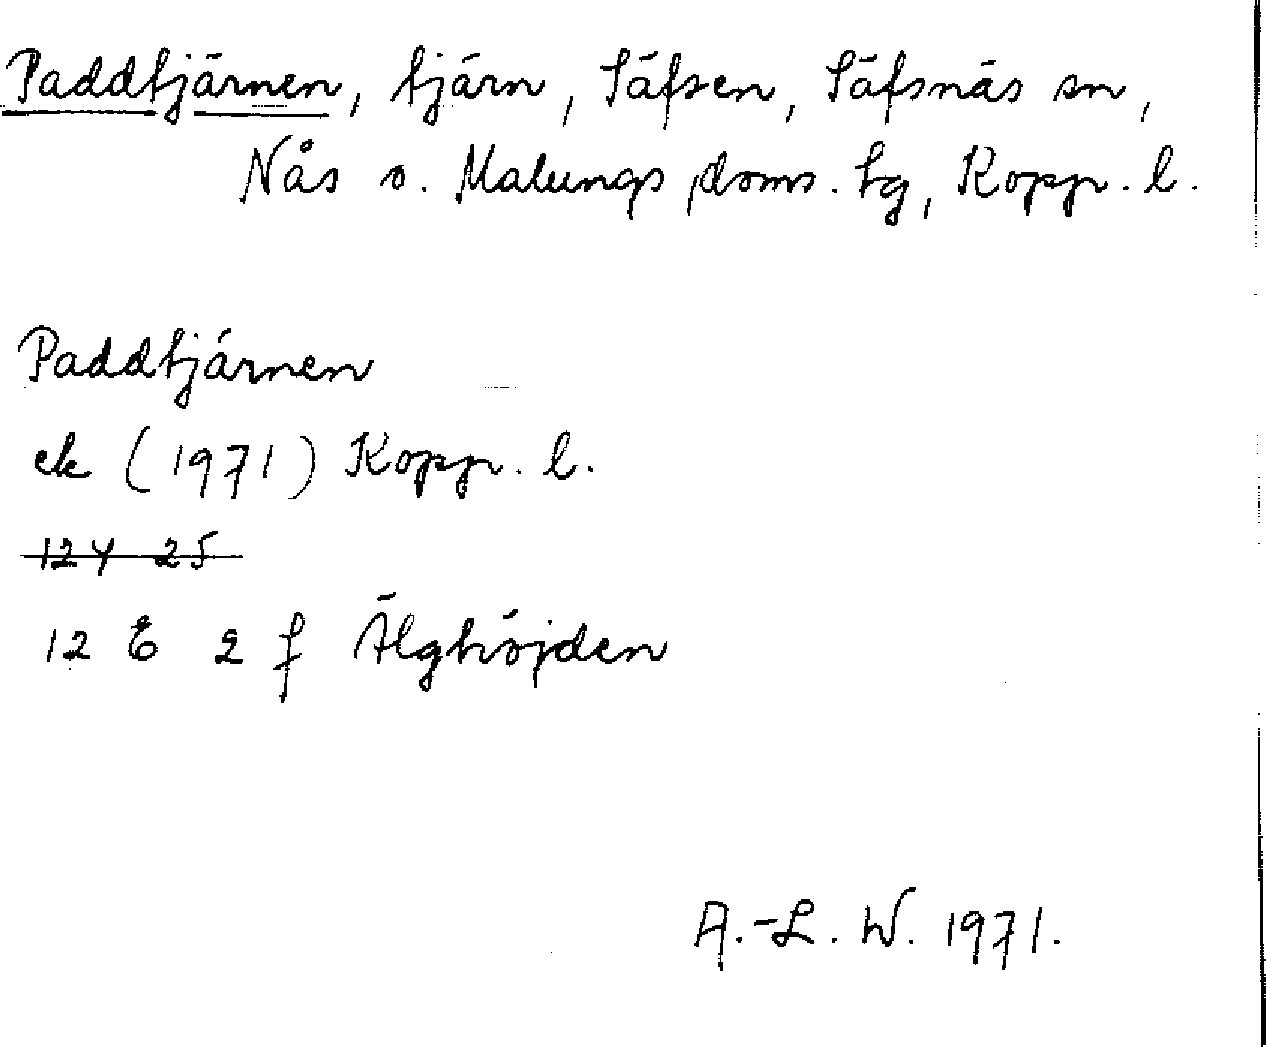 Paddtjärnen, tjärn, Säfsen, Säfsnäs sn,
Nås o. Malungs doms. tg, Kopp. l.
Paddtjärnen
ek (1971) Kopp. l.
12 Y 25
12 E 2 f Älghöjden
A.-L. W. 1971.